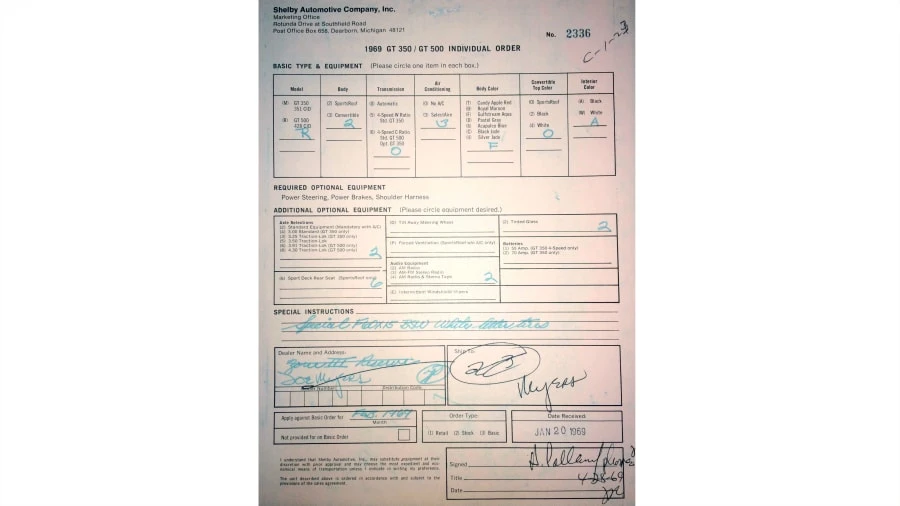 Shelby Automotive Company, Inc.
Marketing Office
Rotunda Drive at Southfield Road
Post Office Box 658, Dearborn, Michigan 48121
No. 2336
C-1-23
1969 GT 350 / GT 500 INDIVIDUAL ORDER
BASIC TYPE & EQUIPMENT (Please circle one item in each box.)
Model
(M) GT 350
351 CID
(R) GT 500
428 CID
R
Body
(2) SportsRoof
(3) Convertible
2
Transmission
Automatic
4-Speed W Ratio
Std. GT 350
4-Speed C Ratio
Std. GT 500
Opt. GT 350
O
Air
Conditioning
No A/C
SelectAire
Body Color
Candy Apple Red
Royal Maroon
Gulfstream Aqua
Pastel Gray
Acapulco Blue
Black Jade
Silver Jade
F
Convertible
Top Color
SportsRoof
(2) Black
White
O
Interior
Color
(A) Black
(W) White
A
REQUIRED OPTIONAL EQUIPMENT
Power Steering, Power Brakes, Shoulder Harness
ADDITIONAL OPTIONAL EQUIPMENT (Please circle equipment desired.)
Axle Selections
Standard Equipment (Mandatory with A/C)
Standard (GT 350 only)
Traction-Lok (GT 350 only)
Traction-Lok
Traction-Lok (GT 500 only)
4.30 Traction-Lok (GT 500 only)
2
Sport Deck Rear Seat (SportsRoof only)
6
Tilt Away Steering Wheel
Forced Ventilation (SportsRoof w/o A/C only)
Audio Equipment
AM Radio
AM-FM Stereo Radio
AM Radio & Stereo Tape
2
Intermittent Windshield Wipers
Tinted Glass
2
Batteries
(GT 350 4-Speed only)
(2) 70 Amp. (GT 350 only)
SPECIAL INSTRUCTIONS
Special BSW White
Dealer Name and Address:
Joe Myers
Distribution Code:
Ship To:
Myers
Apply against Basic Order for Feb. 1969
Month
Not provided for on Basic Order
Order Type:
(1) Retail (2) Stock (3) Basic
Date Received:
JAN 20 1969
I understand that Shelby Automotive, Inc., may substitute equipment at their
discretion with prior approval and may choose the most expedient and eco-
nomical means of transportation unless I indicate in writing my preference.
The unit described above is ordered in accordance with and subject to the
provisions of the sales agreement.
Signed
Title
4-28-69
Date